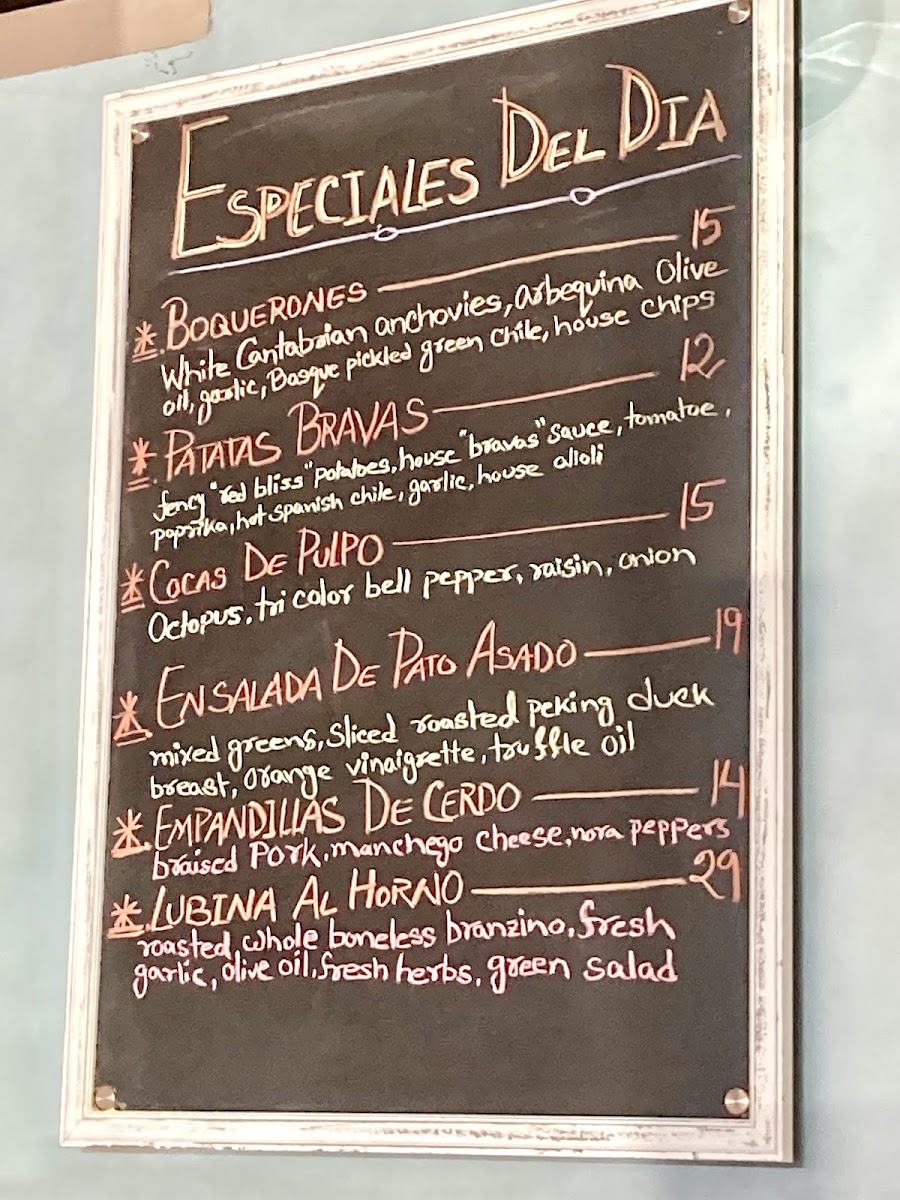 ESPECIALES DEL DIA
BOQUERONES 15
White Cantabrian anchovies, arbequina Olive
oil, garlic, Basque pickled green chile, house chips
PATATAS BRAVAS 12
fency "red bliss" potatoes, house "bravas" sauce, tomatoe,
paprika, hot spanish chile, garlic, house alioli
COCAS DE PULPO 15
Octopus, tri color bell pepper, raisin, onion
ENSALADA DE PATO ASADO 19
mixed greens, Sliced roasted peking duck
breast, orange vinaigrette, truffle oil
EMPANDILLAS DE CERDO 14
braised Pork, manchego cheese, nora peppers
LUBINA AL HORNO 29
roasted, whole boneless branzino, fresh
garlic, olive oil, fresh herbs, green salad